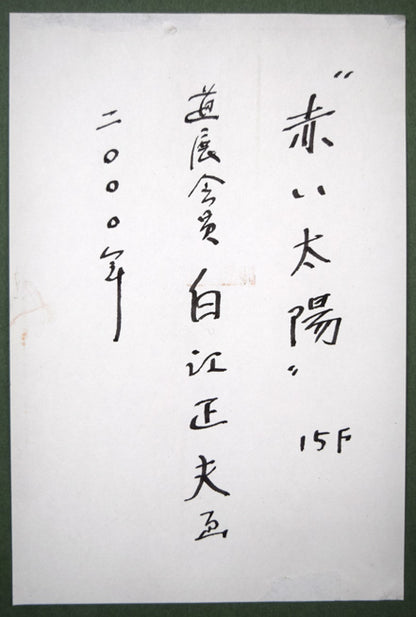 "赤い太陽" 15F
道展会員 白江正夫画
二〇〇〇年